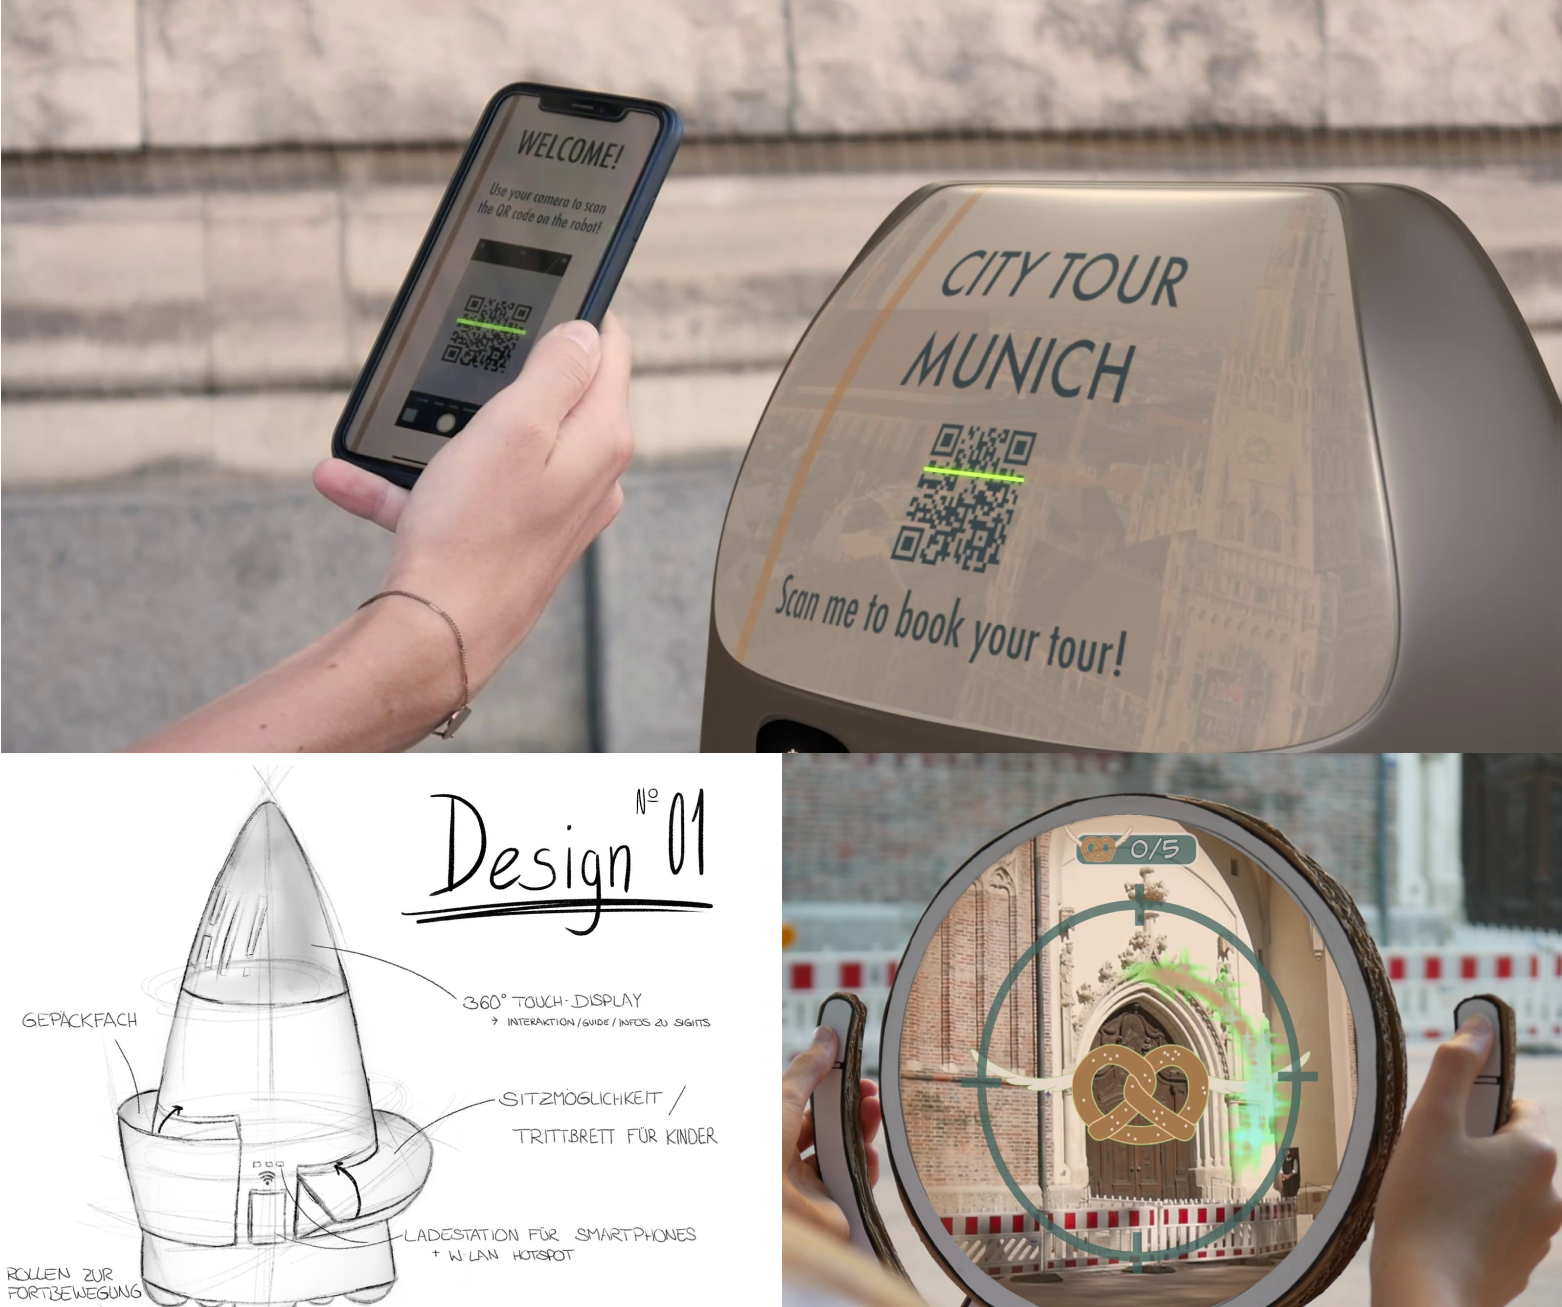 WELCOME!
Use your camera to scan
the QR code on the robot!
CITY TOUR
MUNICH
Scan me to book your tour!
Design Nº 01
GEPÄCKFACH
360° TOUCH-DISPLAY
→ INTERAKTION/GUIDE/INFOS ZU SIGHTS
SITZMÖGLICHKEIT /
TRITTBRETT FÜR KINDER
LADESTATION FÜR SMARTPHONES
+ W-LAN HOTSPOT
ROLLEN ZUR
FORTBEWEGUNG
0/5